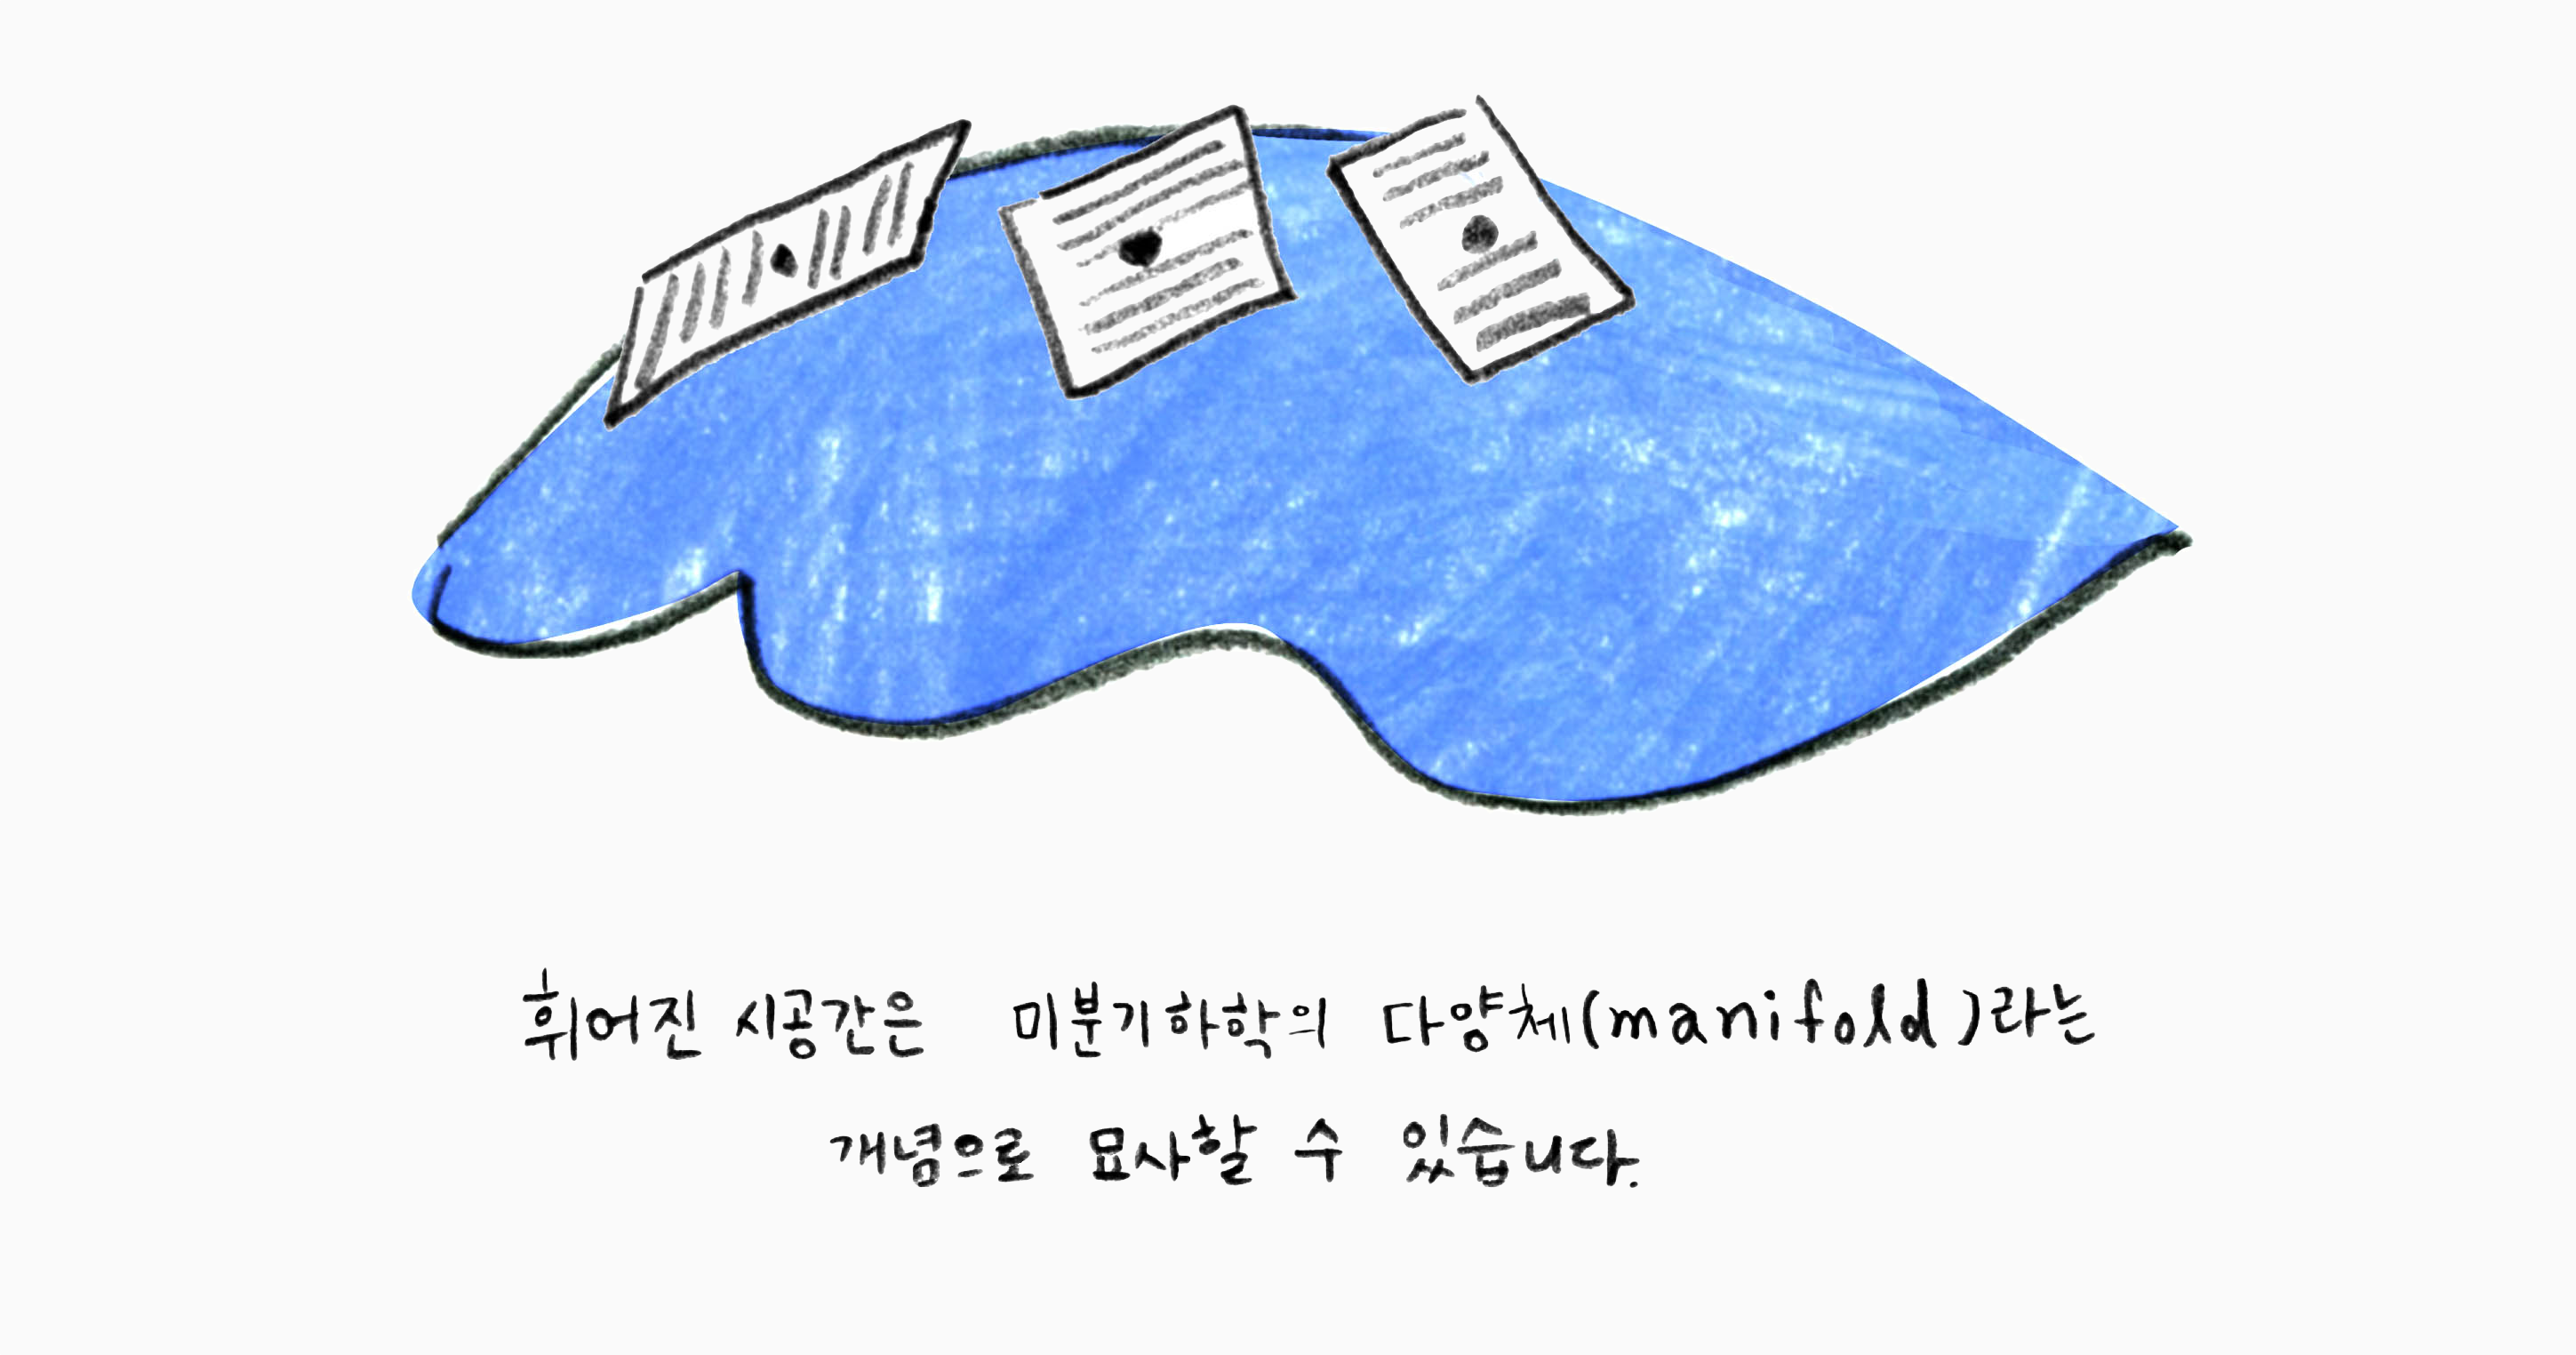 휘어진 시공간은 미분기하학의 다양체(manifold)라는
개념으로 묘사할 수 있습니다.